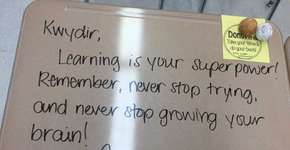 Kwydir,
Learning is your superpower!
Remember, never stop trying,
and never stop growing your
brain!
Take your time &
do your best!